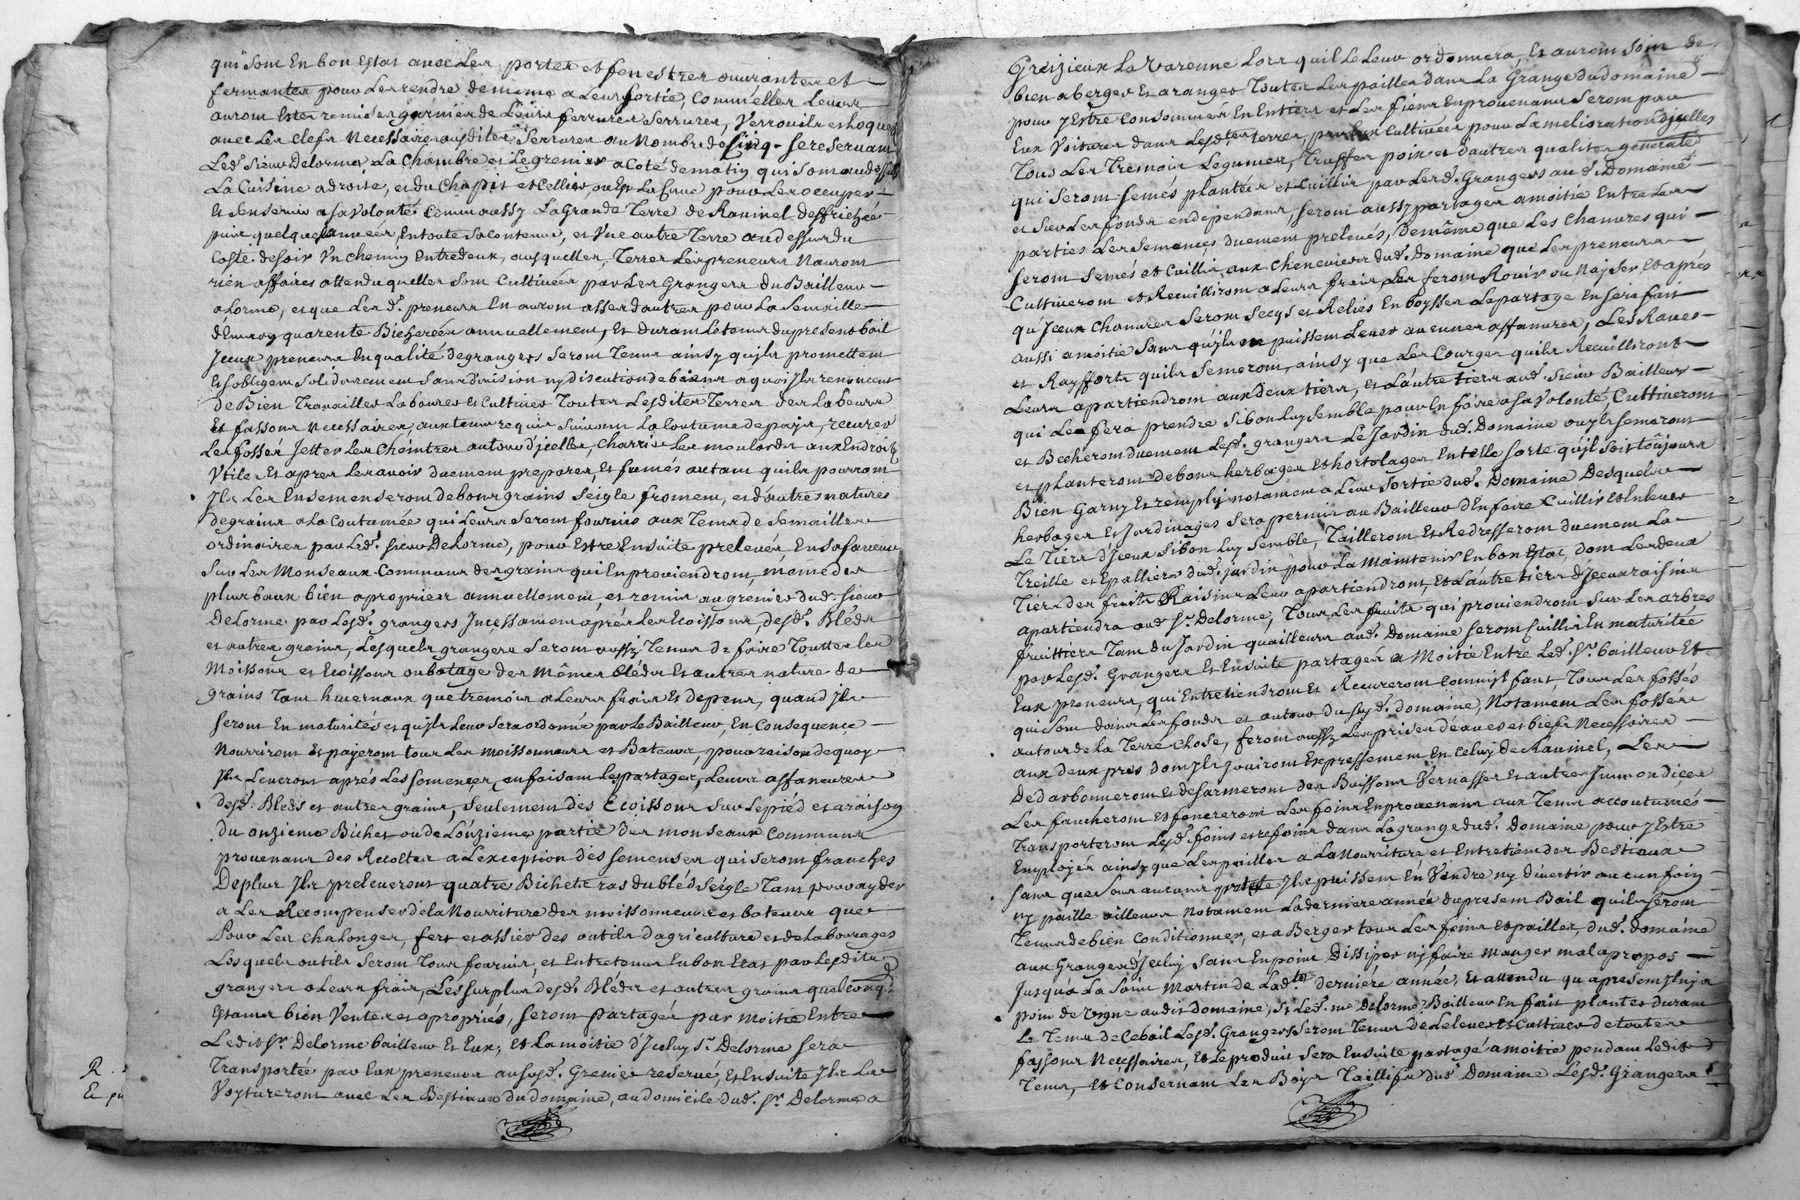 qui sont En bon Estat avec Les portes et fenestres ouvrantes et
fermantes pour Les rendre de meme a Leur sortie, Comm'elles Leurs
auront Estés remises garnies de Leurs ferrures Serrures, Verrouils et loquets
avec Les Clefs Necessaires auxdites Serrures au Nombre de Cinq - Se reservant
Led. Sieur Delorme, La Chambre et Le grenier a Coté de matin qui sont au dessus
La Cuisine a droite, et du Chapit et Cellier ou Est La Cave pour Les occuper
Et s'en servir a sa Volonté Comm'aussy La Grande Terre de Ravinel deffrichée
puis quelques années, En toute sa Contenue, et Une autre Terre au dessus du
Costé de soir Un Chemin Entredeux, auxquelles Terres Les preneurs N'auront
rien affaires attendu qu'elles sont Cultivées par Les Grangers du Bailleur
a Lorme, et que Les d. preneurs En auront assés d'autres pour La Semaille
d'Environ quarente Bicherées annuellement, Et durant Le tems du present bail
Iceux preneurs En qualité de grangers seront Tenus ainsy qu'ils promettent
Et s'obligent solidairement sans division ny discution de biens a quoi Ils renoncent
De Bien Travailler Labourer Et Cultiver Toutes Lesdites Terres des Labeurs
Et fassons necessaires, aux tems requis suivant La Coutume du païs, recurer
Les fossés Jetter Les Cheintres autour d'jcelles, Charrier Les moulards aux Endroits
Utiles Et apres Les avoir duement preparés, Et fumés autant qu'ils pourront
Ils Les Ensemenseront de bons grains Seigle froment, et d'autres natures
de grains a La Coutumée qui Leurs seront fournis aux Tems de Semailles
ordinaires par Led. Sieur Delorme, pour Estre Ensuite prelevés En sa faveur
Sur Les Monseaux Communs des grains qui En proviendront, meme des
plus beaux bien apropriés annuellement, et remis au grenier dud. Sieur
Delorme par Lesd. grangers Incessament aprés Les Ecoissons, desd. Bléds
et autres grains, Lesquels grangers seront aussy Tenus de faire Touttes Les
Moissons et Ecoissons ou batage des Mêmes bléds Et autres nature de
grains Tant hivernaux que tremois a Leurs frais Et depens, quand Ils
seront En maturités et qu'il Leur sera ordonné par Le Bailleur, En Consequence
Nourriront Et payeront tous Les Moissonneurs et Bateurs, pour raison de quoy
Ils Leveront aprés Les semences, en faisant Les partages, Leurs affanures
desd. Bleds et autres grains, seulement des Ecoissons Sur Le pied et a raison
du onzieme Bichet ou de L'onzieme partie des monseaux Communs
provenans des Recoltes a L'exception des semenses qui seront franches
De plus Ils preleveront quatre Bichets ras du bled Seigle Tant pour ayder
a Les Recompenser de la Nourriture des moissonneurs et bateurs que
Pour Les Chalonger, fers et assier des outils d'agriculture et de labourages
Lesquels outils seront Tous fournis, et Entretenus En bon Etat par Lesdits
grangers a Leurs frais, Les surplus desd. Bléds et autres grains quelconq.
Estans bien Ventés et apropriés, seront partagés par moitié Entre
Ledit Sr. Delorme bailleur Et Eux, Et La moitié d'Icelui Sr. Delorme sera
Transportée par Eux preneurs au susd. Grenier reservé, Et Ensuite Ils La
Voytureront avec Les Bestiaux du domaine, au domicile dud. Sr. Delorme a
Greizieux La Varenne Lors qu'il Le Leur ordonnera, Et auront soin de
bien aberger Et aranger Toutes Les pailles dans La Grange du Domaine
pour y Estre Consommées En Entiers et Les fiens En provenans seront par
Eux Voiturés dans Lesd.tes terres, par Eux Cultivées pour L'amelioration d'jcelles
Tous Les Tremois Legumes, Truffes pois et d'autres qualités generale
qui seront semés plantés et Cuillis par Lesd. Grangers aud. Domaine
et Sur Les fonds en dependans, seront aussy partagés a moitié Entre Les
parties Les semences duement prelevés, De même que Les Chanvres qui
seront semés et Cuillis, aux Chenevieres dud. Domaine que Les preneurs
Cultiveront et Recuilliront a Leurs frais Les feront Rouir ou Naiser Et aprés
qu'Jceux Chanvres seront secqs et Reliés En boysses Le partage En sera fait
aussi a moitié sans qu'ils En puissent Lever aucunes affanures, Les Raves
et Raysforts qu'ils semeront, ainsy que Les Courges qu'ils Recuilliront
Leurs apartiendront aux deux tiers, et L'autre tiers aud. Sieur Bailleur
qui Les fera prendre si bon Luy semble pour En faire a sa Volonté, Cultiveront
et Becheront duement Lesd. grangers Le Jardin dud. Domaine ou ils semeront
et planteront de bons herbages Et hortolages En telle sorte qu'il soit toûjours
Bien Garny Et remply notament a Leur sortie dud. Domaine Desquels
herbages Et Jardinages sera permis au Bailleur d'En faire Cuillir Et Enlever
Le Tiers d'Jceux si bon Luy semble, Tailleront Et Redresseront duement La
Treille et Espalliers dud. jardin pour La Maintenir En bon Estat, dont Les deux
Tiers des fruits Raisins Leur apartiendront, Et L'autre tiers d'Jceux raisins
apartiendra aud. Sr. Delorme, Tous Les fruits qui proviendront Sur Les arbres
fruittiers Tant du Jardin qu'ailleurs aud. Domaine seront Cuillis En maturitée
par Lesd. Grangers Et Ensuite partagés a Moitié Entre Led. Sr. bailleur Et
Eux preneurs, qui Entretiendront Et Recureront Comm'il faut, Tous Les fossés
qui sont dans Les fonds et autour du susd. domaine, Notament Les fossés
autour de la Terre Chose, feront aussy Les prises d'eaux et biefs Necessaires
aux deux prés dont Ils jouiront Expressement En Celuy de Ravinel, Les
Dedarbonneront Et desarmeront des Buissons Vernasses Et autres Immondices
Les faucheront Et feneront Les foins En provenans aux Tems accoutumés
Transporteront Lesd. foins et refoins dans La grange dud. Domaine pour y Estre
Employés ainsy que Les pailles a La Nourriture et Entretien des Bestiaux
sans que sous aucuns pretexte Ils puissent En Vendre ny divertir aucun foin
ny paille ailleurs Notament La derniere année du present Bail qu'ils seront
Tenus de bien Conditionner, et aBerger tous Les foins Et pailles, dud. domaine
aux Granges d'Jceluy sans En point Dissiper ny faire Manger mal apropos
Jusqu'a La Saint Martin de Lad.te derniére année, Et attendu qu'a present Il n'y a
point de Vigne audit domaine, si Led. Sr. Delorme Bailleur En fait planter durant
Le Tems de Ce bail Lesd. Grangers seront Tenus de L'elever Et Cultiver de toutes
fassons Necessaires, Et Le produit sera Ensuite partagé a moitié pendant Ledit
Tems, Et Consernant Les Boys Taillifs dud. Domaine Lesd. Grangers